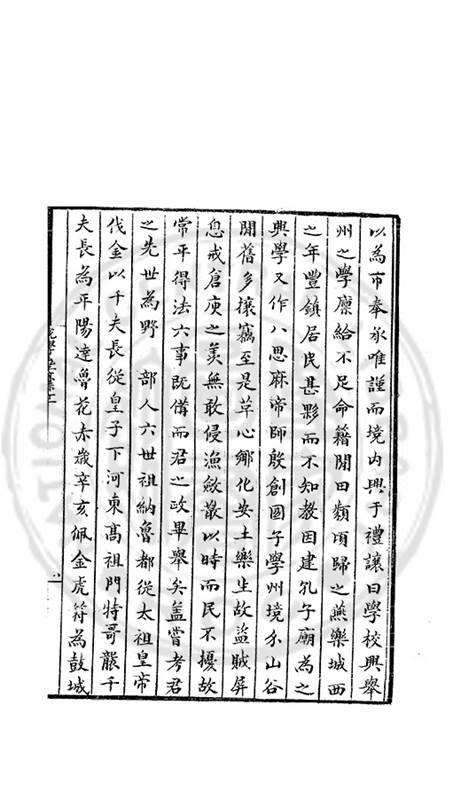 以為市奉承唯謹而境内興于禮讓曰學校興舉
州之學廩給不足命籍閒田數頃歸之燕樂城西
之年豐鎮居民甚夥而不知教因建孔子廟為之
興學又作八思麻帝師殿創國子學州境介山谷
閒舊多攘竊至是草心鄉化安土樂生故盜賊屏
息戒倉庾之羨無敢侵漁斂散以時而民不擾故
常平得法六事既備而君之政畢舉矣盖嘗考君
之先世為野 部人六世祖納魯都從太祖皇帝
伐金以千夫長從皇子下河東髙祖門特哥襲千
夫長為平陽達魯花赤歳辛亥佩金虎符為鼓城